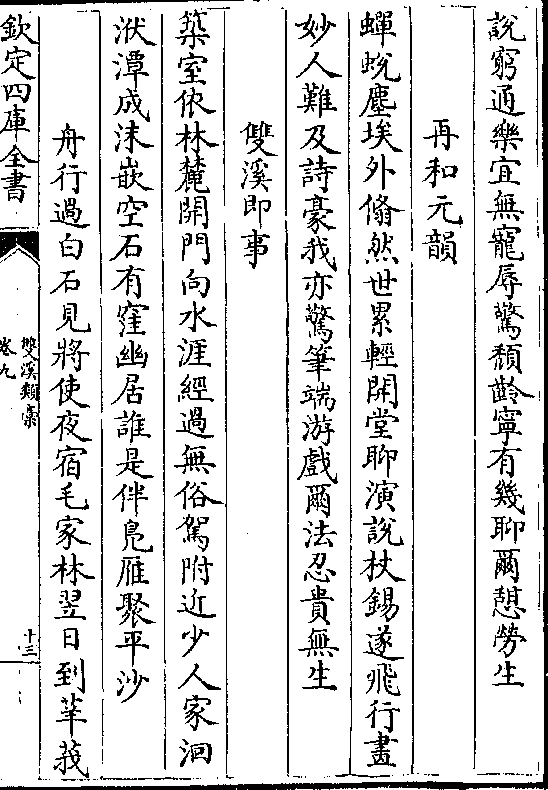 說窮通樂宜無寵辱驚頽齡寧有幾聊爾憩勞生
再和元韻
蟬蛻塵埃外翛然世累輕開堂聊演說杖錫遂飛行畫
妙人難及詩豪我亦驚筆端游戲爾法忍貴無生
雙溪即事
築室依林麓開門向水涯經過無俗駕附近少人家洄
洑潭成沫嵌空石有窪幽居誰是伴鳬雁聚平沙
舟行過白石見將使夜宿毛家林翌日到莘莪
欽定四庫全書
雙溪類稾
卷九
十三